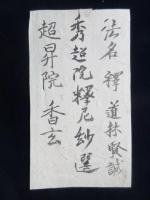 法名 釋 道林賢誠
秀超院釋尼妙蓮
超昇院 香玄